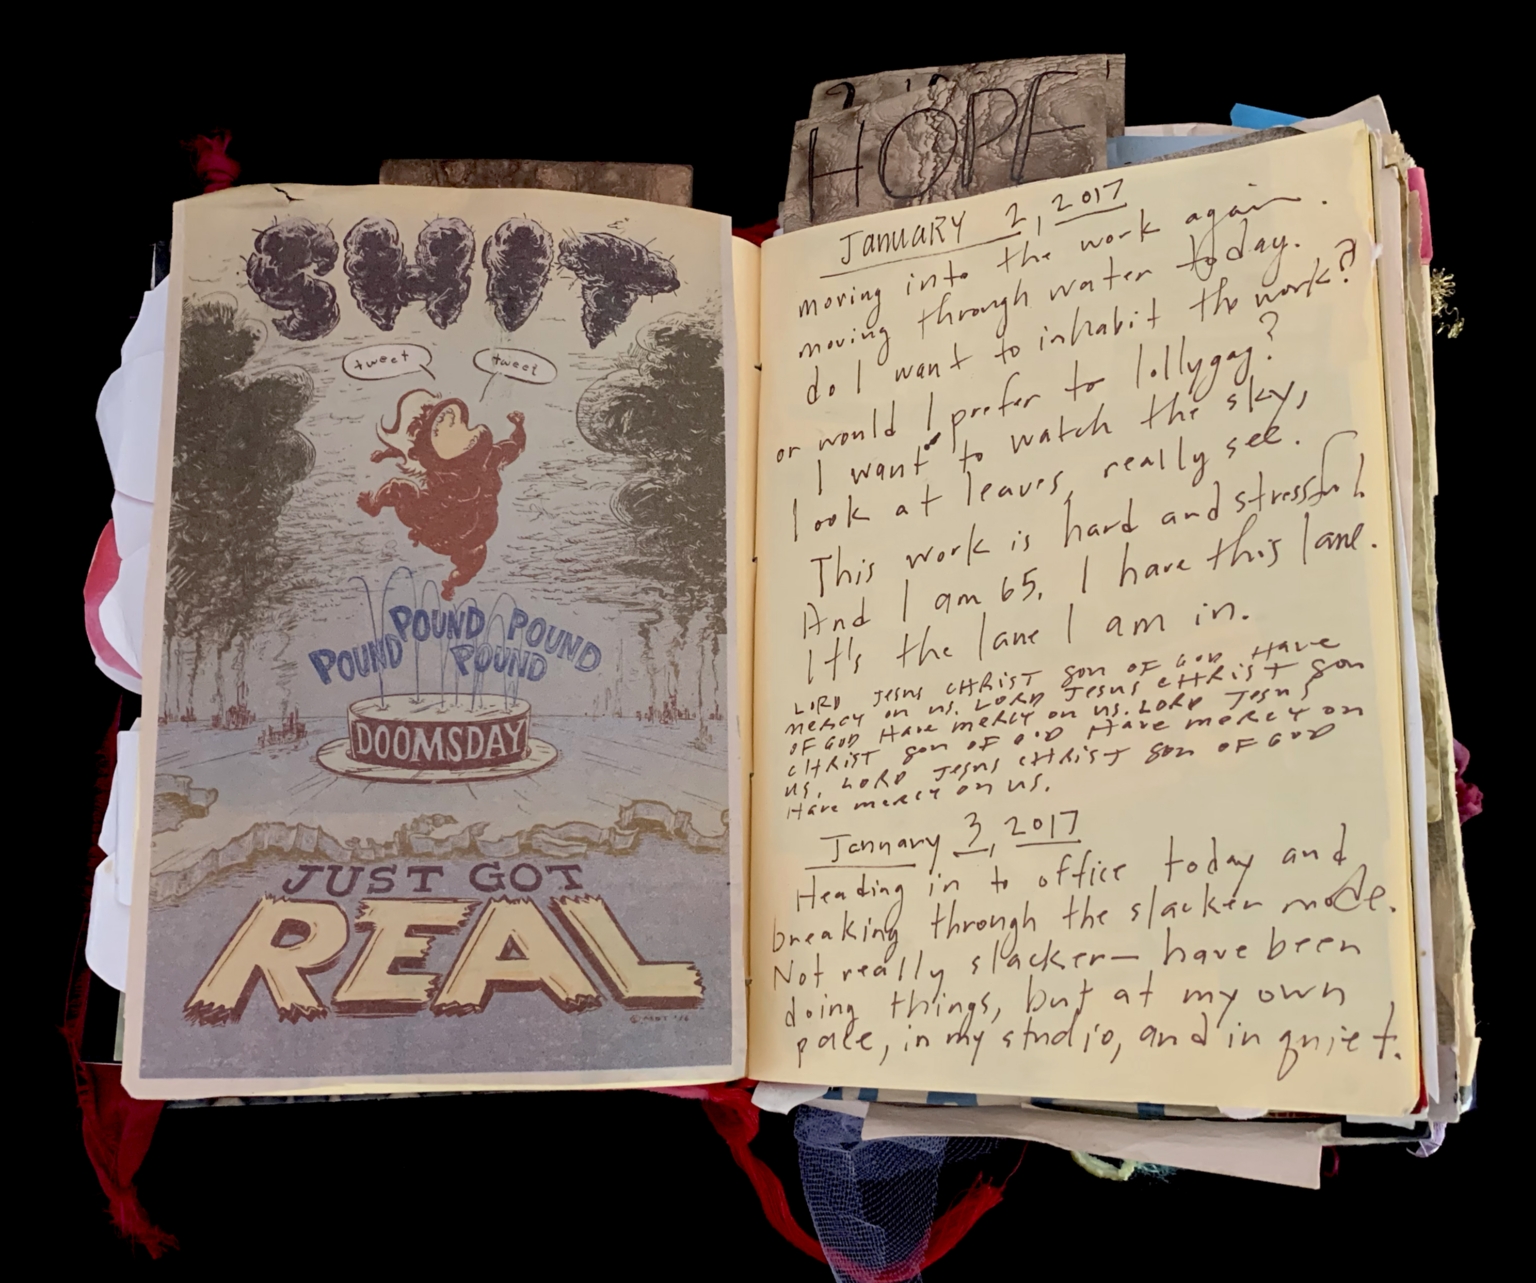 SHIT
tweet
tweet
POUND POUND POUND
POUND
DOOMSDAY
JUST GOT
REAL
HOPE
JANUARY 2, 2017
moving into the work again.
moving through water today.
do I want to inhabit the work?
or would I prefer to lollygag?
I want to watch the sky,
look at leaves, really see.
This work is hard and stressful.
And I am 65. I have this lane.
It's the lane I am in.
LORD Jesus CHRIST SON OF GOD HAVE
mercy on us. LORD Jesus CHRIST SON
OF GOD Have mercy on us. LORD Jesus
CHRIST SON OF GOD Have mercy on
us. LORD Jesus CHRIST SON OF GOD
Have mercy on us.
January 3, 2017
Heading in to office today and
breaking through the slacker mode.
Not really slacker— have been
doing things, but at my own
pace, in my studio, and in quiet.